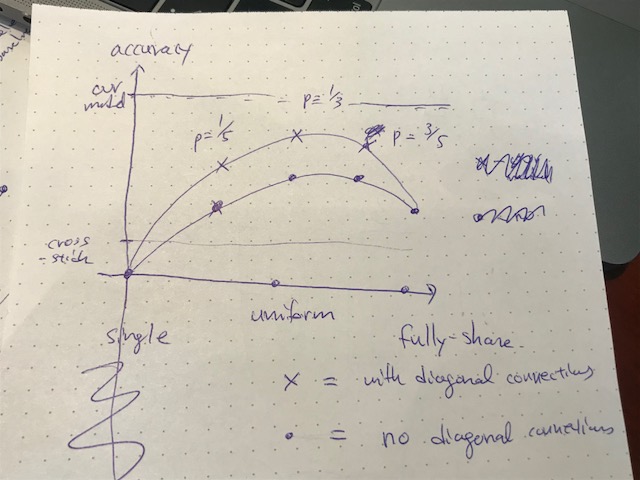 accuracy
our
model
p=1/3
p=1/5
p=3/5
cross
-stitch
uniform
single
fully-share.
x = with diagonal connections
• = no diagonal connections